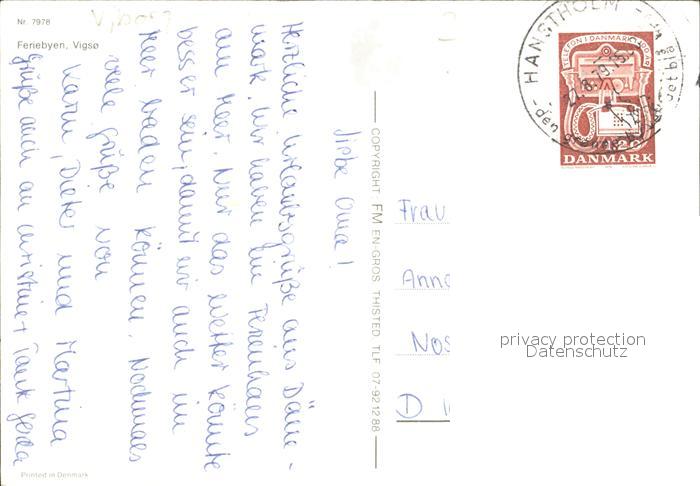 Nr. 7978
Feriebyen, Vigsø
Viborg
Liebe Oma!
Herzliche Urlaubsgrüße aus Däne-
mark. Wir haben ein Ferienhaus
am Meer. Nur das Wetter könnte
besser sein, damit wir auch im
Meer baden können. Nochmals
viele Grüße von
Karin, Dieter und Martina
Grüße auch an Christine + Tante Gerda
Printed in Denmark
COPYRIGHT FM EN-GROS THISTED TLF 07-921288
Frau
Anne
Nos
D
privacy protection
Datenschutz
HANSTHOLM
22.8.79.15
TELEFON I DANMARK 100 ÅR
DANMARK